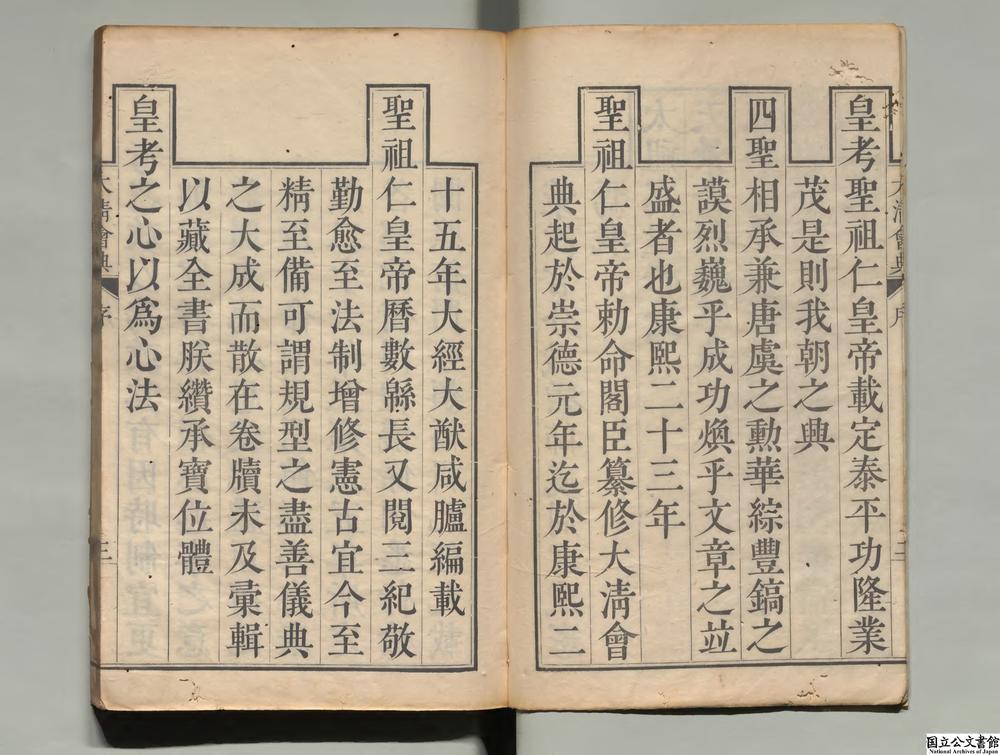 皇考聖祖仁皇帝載定泰平功隆業
茂是則我朝之興
四聖相承兼唐虞之勳華綜豐鎬之
謨烈巍乎成功煥乎文章之竝
盛者也康熙二十三年
聖祖仁皇帝勅命閣臣纂修大清會
典起於崇德元年迄於康熙二
十五年大經大猷咸臚編載
聖祖仁皇帝曆數緜長又閱三紀敬
勤愈至法制增修憲古宜今至
精至備可謂規型之盡善儀典
之大成而散在卷牘未及彙輯
以藏全書朕纘承寶位體
皇考之心以爲心法
大清會典
序
三
国立公文書館
National Archives of Japan